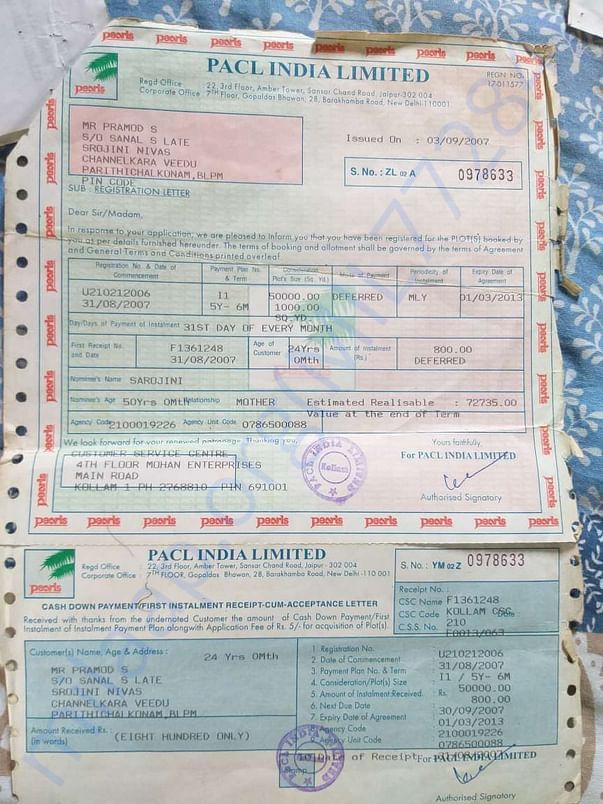 pearls pearls pearls pearls pearls pearls pearls pearls
PACL INDIA LIMITED
REGN NO.
17-011577
pearls
Regd Office : 22, 3rd Floor, Amber Tower, Sansar Chand Road, Jaipur-302 004
Corporate Office : 7TH Floor, Gopaldas Bhawan, 28, Barakhamba Road, New Delhi-110001
MR PRAMOD S
S/O SANAL S LATE
SROJINI NIVAS
CHANNELKARA VEEDU
PARITHICHALKONAM,BLPM
PIN CODE
Issued On : 03/09/2007
S. No. : ZL 02 A 0978633
SUB : REGISTRATION LETTER
Dear Sir/Madam,
In response to your application; we are pleased to Inform you that you have been registered for the PLOT(s) booked by
you as per details furnished hereunder. The terms of booking and allotment shall be governed by the terms of Agreement
and General Terms and Conditions printed overleaf
Registration No. & Date of Commencement
Payment Plan No. & Term
Consideration Plot's Size (Sq. Yd.)
Mode of Payment
Periodicity of Instalment
Expiry Date of Agreement
U210212006 I1 50000.00 DEFERRED MLY 01/03/2013
31/08/2007 5Y- 6M 1000.00
SQ.YD.
Day/Days of Payment of Instalment 31ST DAY OF EVERY MONTH
First Receipt No. and Date
F1361248
31/08/2007
Age of Customer
24Yrs
0Mth
Amount of Instalment (Rs.)
800.00
DEFERRED
Nominee's Name SAROJINI
Nominee's Age 50Yrs 0Mth Relationship MOTHER Estimated Realisable : 72735.00
Value at the end of Term
Agency Code 2100019226 Agency Unit Code 0786500088
We look forward for your renewed patronage. Thanking you,
Yours faithfully,
CUSTOMER SERVICE CENTRE
4TH FLOOR MOHAN ENTERPRISES
MAIN ROAD
KOLLAM 1 PH 2768810 PIN 691001
PACL INDIA LIMITED
Kollam
For PACL INDIA LIMITED
Authorised Signatory
pearls pearls pearls pearls pearls pearls pearls pearls pearls pearls
PACL INDIA LIMITED
pearls
Regd Office : 22, 3rd Floor, Amber Tower, Sansar Chand Road, Jaipur - 302 004
Corporate Office : 7TH FLOOR, Gopaldas Bhawan, 28, Barakhamba Road, New Delhi -110 001
S. No. : YM 02 Z 0978633
CASH DOWN PAYMENT/FIRST INSTALMENT RECEIPT-CUM-ACCEPTANCE LETTER
Received with thanks from the undernoted Customer the amount of Cash Down Payment/First
Instalment of Instalment Payment Plan alongwith Application Fee of Rs. 5/- for acquisition of Plot(s).
Receipt No. : F1361248
CSC Name : KOLLAM CSC
CSC Code : 210
C.S.S. No. : Date
E0013/063
Customer(s) Name, Age & Address : 24 Yrs 0Mth
MR PRAMOD S
S/O SANAL S LATE
SROJINI NIVAS
CHANNELKARA VEEDU
PARITHICHALKONAM,BLPM
Amount Received Rs. :
(in words) (EIGHT HUNDRED ONLY)
1. Registration No. : U210212006
2. Date of Commencement : 31/08/2007
3. Payment Plan No. & Term : I1 / 5Y- 6M
4. Consideration/Plot(s) Size : 50000.00
5. Amount of Instalment Received : Rs. 800.00
6. Next Due Date : 30/09/2007
7. Expiry Date of Agreement : 01/03/2013
8. Agency Code : 2100019226
9. Agency Unit Code : 0786500088
10 Date of Receipt 31/08/2007
PACL INDIA LIMITED
Stamp
For PACL INDIA LIMITED
Authorised Signatory